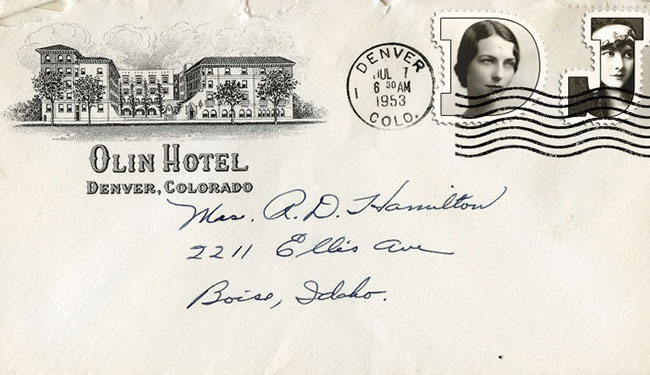 DENVER
JUL 7
6 30 AM
1
1953
COLO.
D J
OLIN HOTEL
DENVER, COLORADO
Mrs. R. D. Hamilton
2211 Ellis Ave
Boise, Idaho.